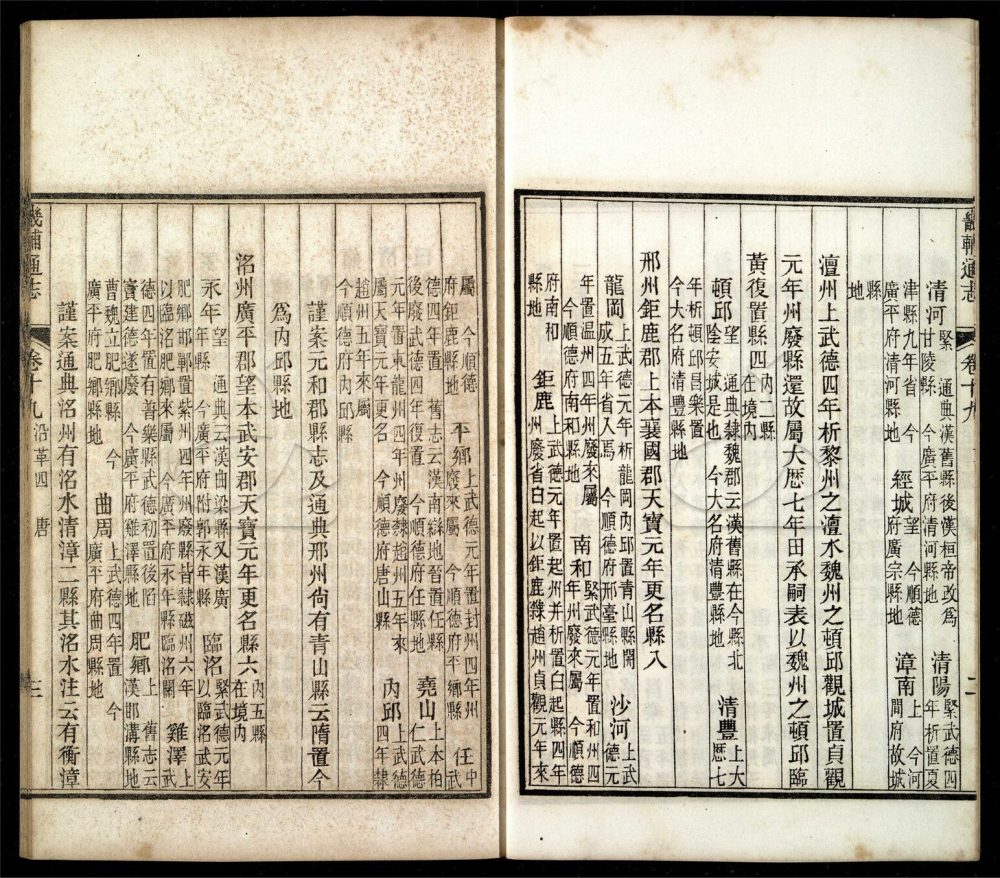 畿輔通志 卷十九 二
清河 緊 通典漢舊縣後漢桓帝改爲甘陵縣 今廣平府清河縣地 清陽 緊武德四年析置夏
津縣九年省 今廣平府清河縣地 經城 望 今順德府廣宗縣地 漳南 上 今河間府故城
縣地
澶州上武德四年析黎州之澶水魏州之頓邱觀城置貞觀
元年州廢縣還故屬大歷七年田承嗣表以魏州之頓邱臨
黃復置縣四 內二縣在境內
頓邱 望 通典隸魏郡云漢舊縣在今縣北陰安城是也 今大名府清豐縣地 清豐 上大歷七
年析頓邱昌樂置今大名府清豐縣地
邢州鉅鹿郡上本襄國郡天寶元年更名縣八
龍岡 上武德元年析龍岡內邱置青山縣開成五年省入焉 今順德府邢臺縣地 沙河 上武德元
年置温州四年州廢來屬 今順德府南和縣地 南和 緊武德元年置和州四年州廢來屬 今順德
府南和縣地 鉅鹿 上武德元年置起州并析置白起縣四年州廢省白起以鉅鹿隸趙州貞觀元年來
屬 今順德府鉅鹿縣地 平鄉 上武德元年置封州四年州廢來屬 今順德府平鄉縣 任 中武
德四年置 舊志云漢南䜌地晉置任縣後廢武德四年復置 今順德府任縣地 堯山 上本柏仁武德
元年置東龍州四年州廢隸趙州五年來屬天寶元年更名 今順德府唐山縣 內邱 上武德四年隸
趙州五年來屬今順德府內邱縣
謹案元和郡縣志及通典邢州尙有青山縣云隋置今
爲內邱縣地
洺州廣平郡望本武安郡天寶元年更名縣六 內五縣在境內
永年 望 通典云漢曲梁縣又漢廣年縣 今廣平府附郭永年縣 臨洺 緊武德元年以臨洺武安
肥鄉邯鄲置紫州四年州廢縣皆隸磁州六年以臨洺肥鄉來屬 今廣平府永年縣臨洺關 雞澤 上武
德四年置有普樂縣武德初置後陷竇建德遂廢 今廣平府雞澤縣地 肥鄉 上 舊志云漢邯溝縣地
曹魏立肥鄉縣 今廣平府肥鄉縣地 曲周 上武德四年置 今廣平府曲周縣地
謹案通典洺州有洺水清漳二縣其洺水注云有衡漳
畿輔通志 卷十九 沿革四 唐 三